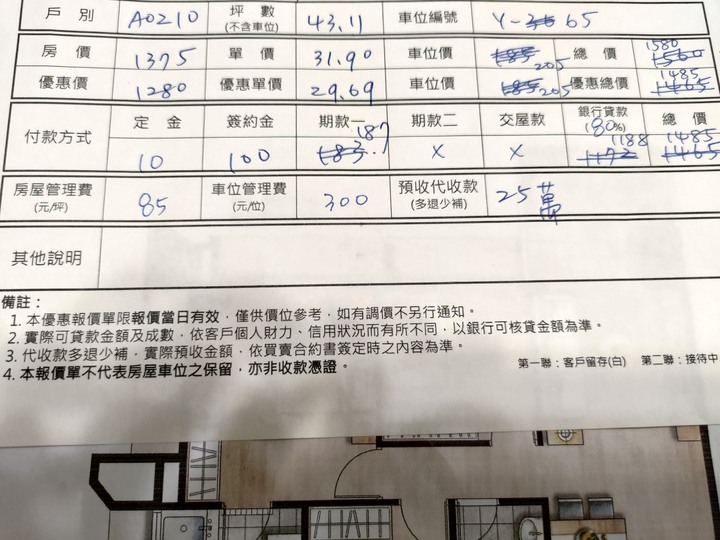 戶別 A0210 坪數(不含車位) 43.11 車位編號 Y-36 65
房價 1375 單價 31.90 車位價 185 205 總價 1560 1580
優惠價 1280 優惠單價 29.69 車位價 185 205 優惠總價 1465 1485
付款方式 定金 簽約金 期款一 期款二 交屋款 銀行貸款(80%) 總價
10 100 183 187 X X 1172 1188 1465 1485
房屋管理費(元/坪) 85 車位管理費(元/位) 300 預收代收款(多退少補) 25萬
其他說明
備註：
1. 本優惠報價單限報價當日有效，僅供價位參考，如有調價不另行通知。
2. 實際可貸款金額及成數，依客戶個人財力、信用狀況而有所不同，以銀行可核貸金額為準。
3. 代收款多退少補，實際預收金額，依買賣合約書簽定時之內容為準。
4. 本報價單不代表房屋車位之保留，亦非收款憑證。
第一聯：客戶留存(白) 第二聯：接待中